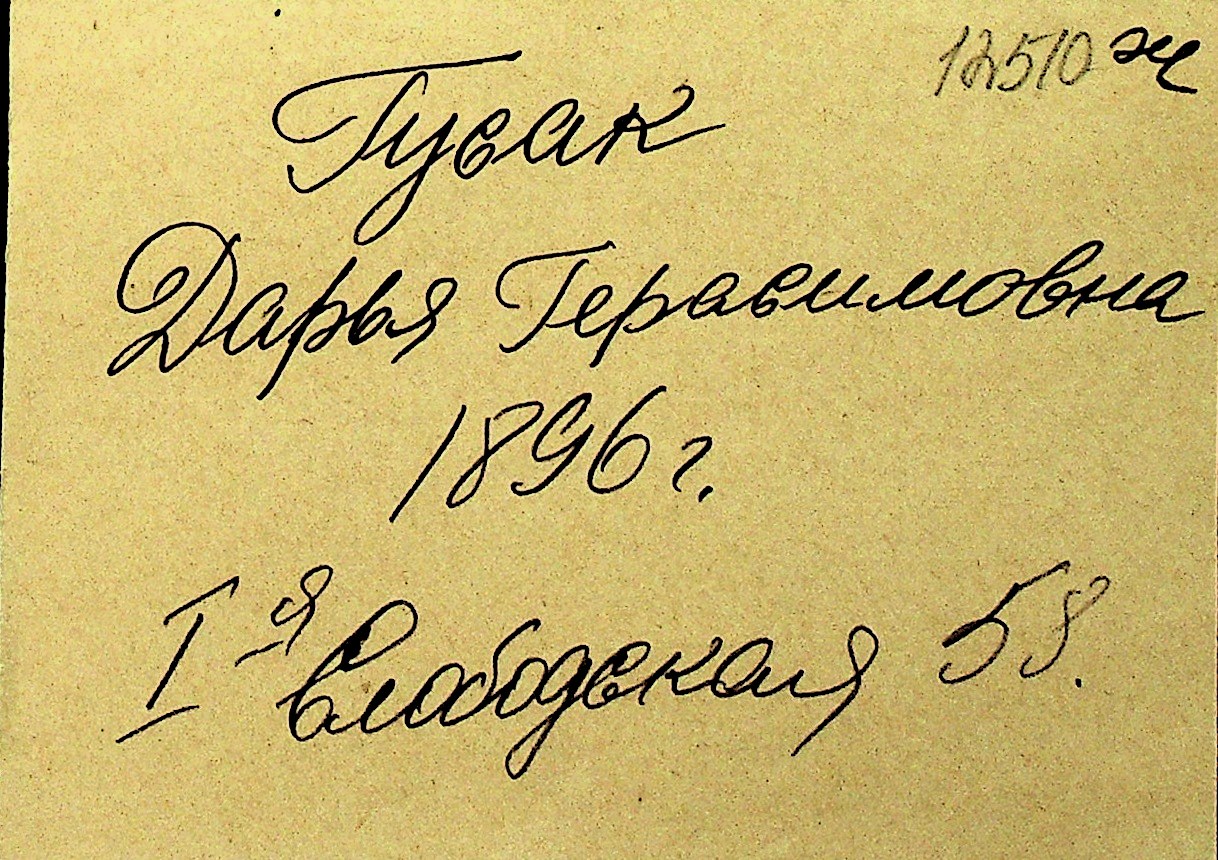 12510 ж
Гусак
Дарья Герасимовна
1896 г.
I я Слободская 58.